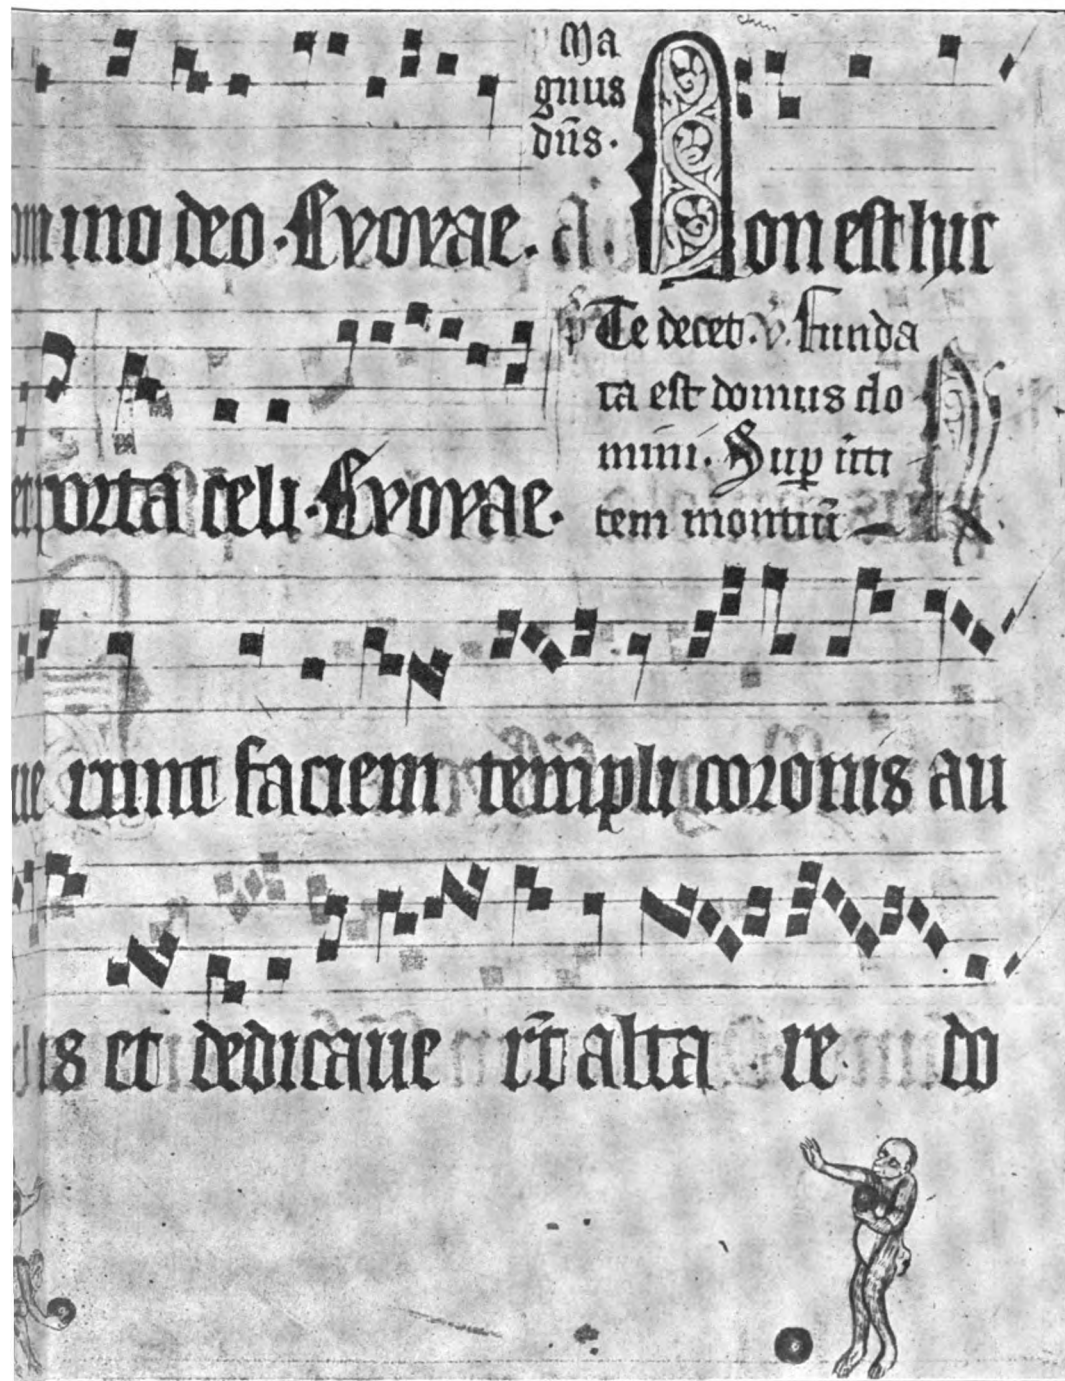 Ma
gnus
dn̄s ·
omino deo · Evovae · Non est hic
Te decet. v. Funda
ta est domus do
mini. Sup
tem montiū
et porta celi · Evovae ·
ue runt faciem templi coronis au
is et dedicaue rt̄ alta re do